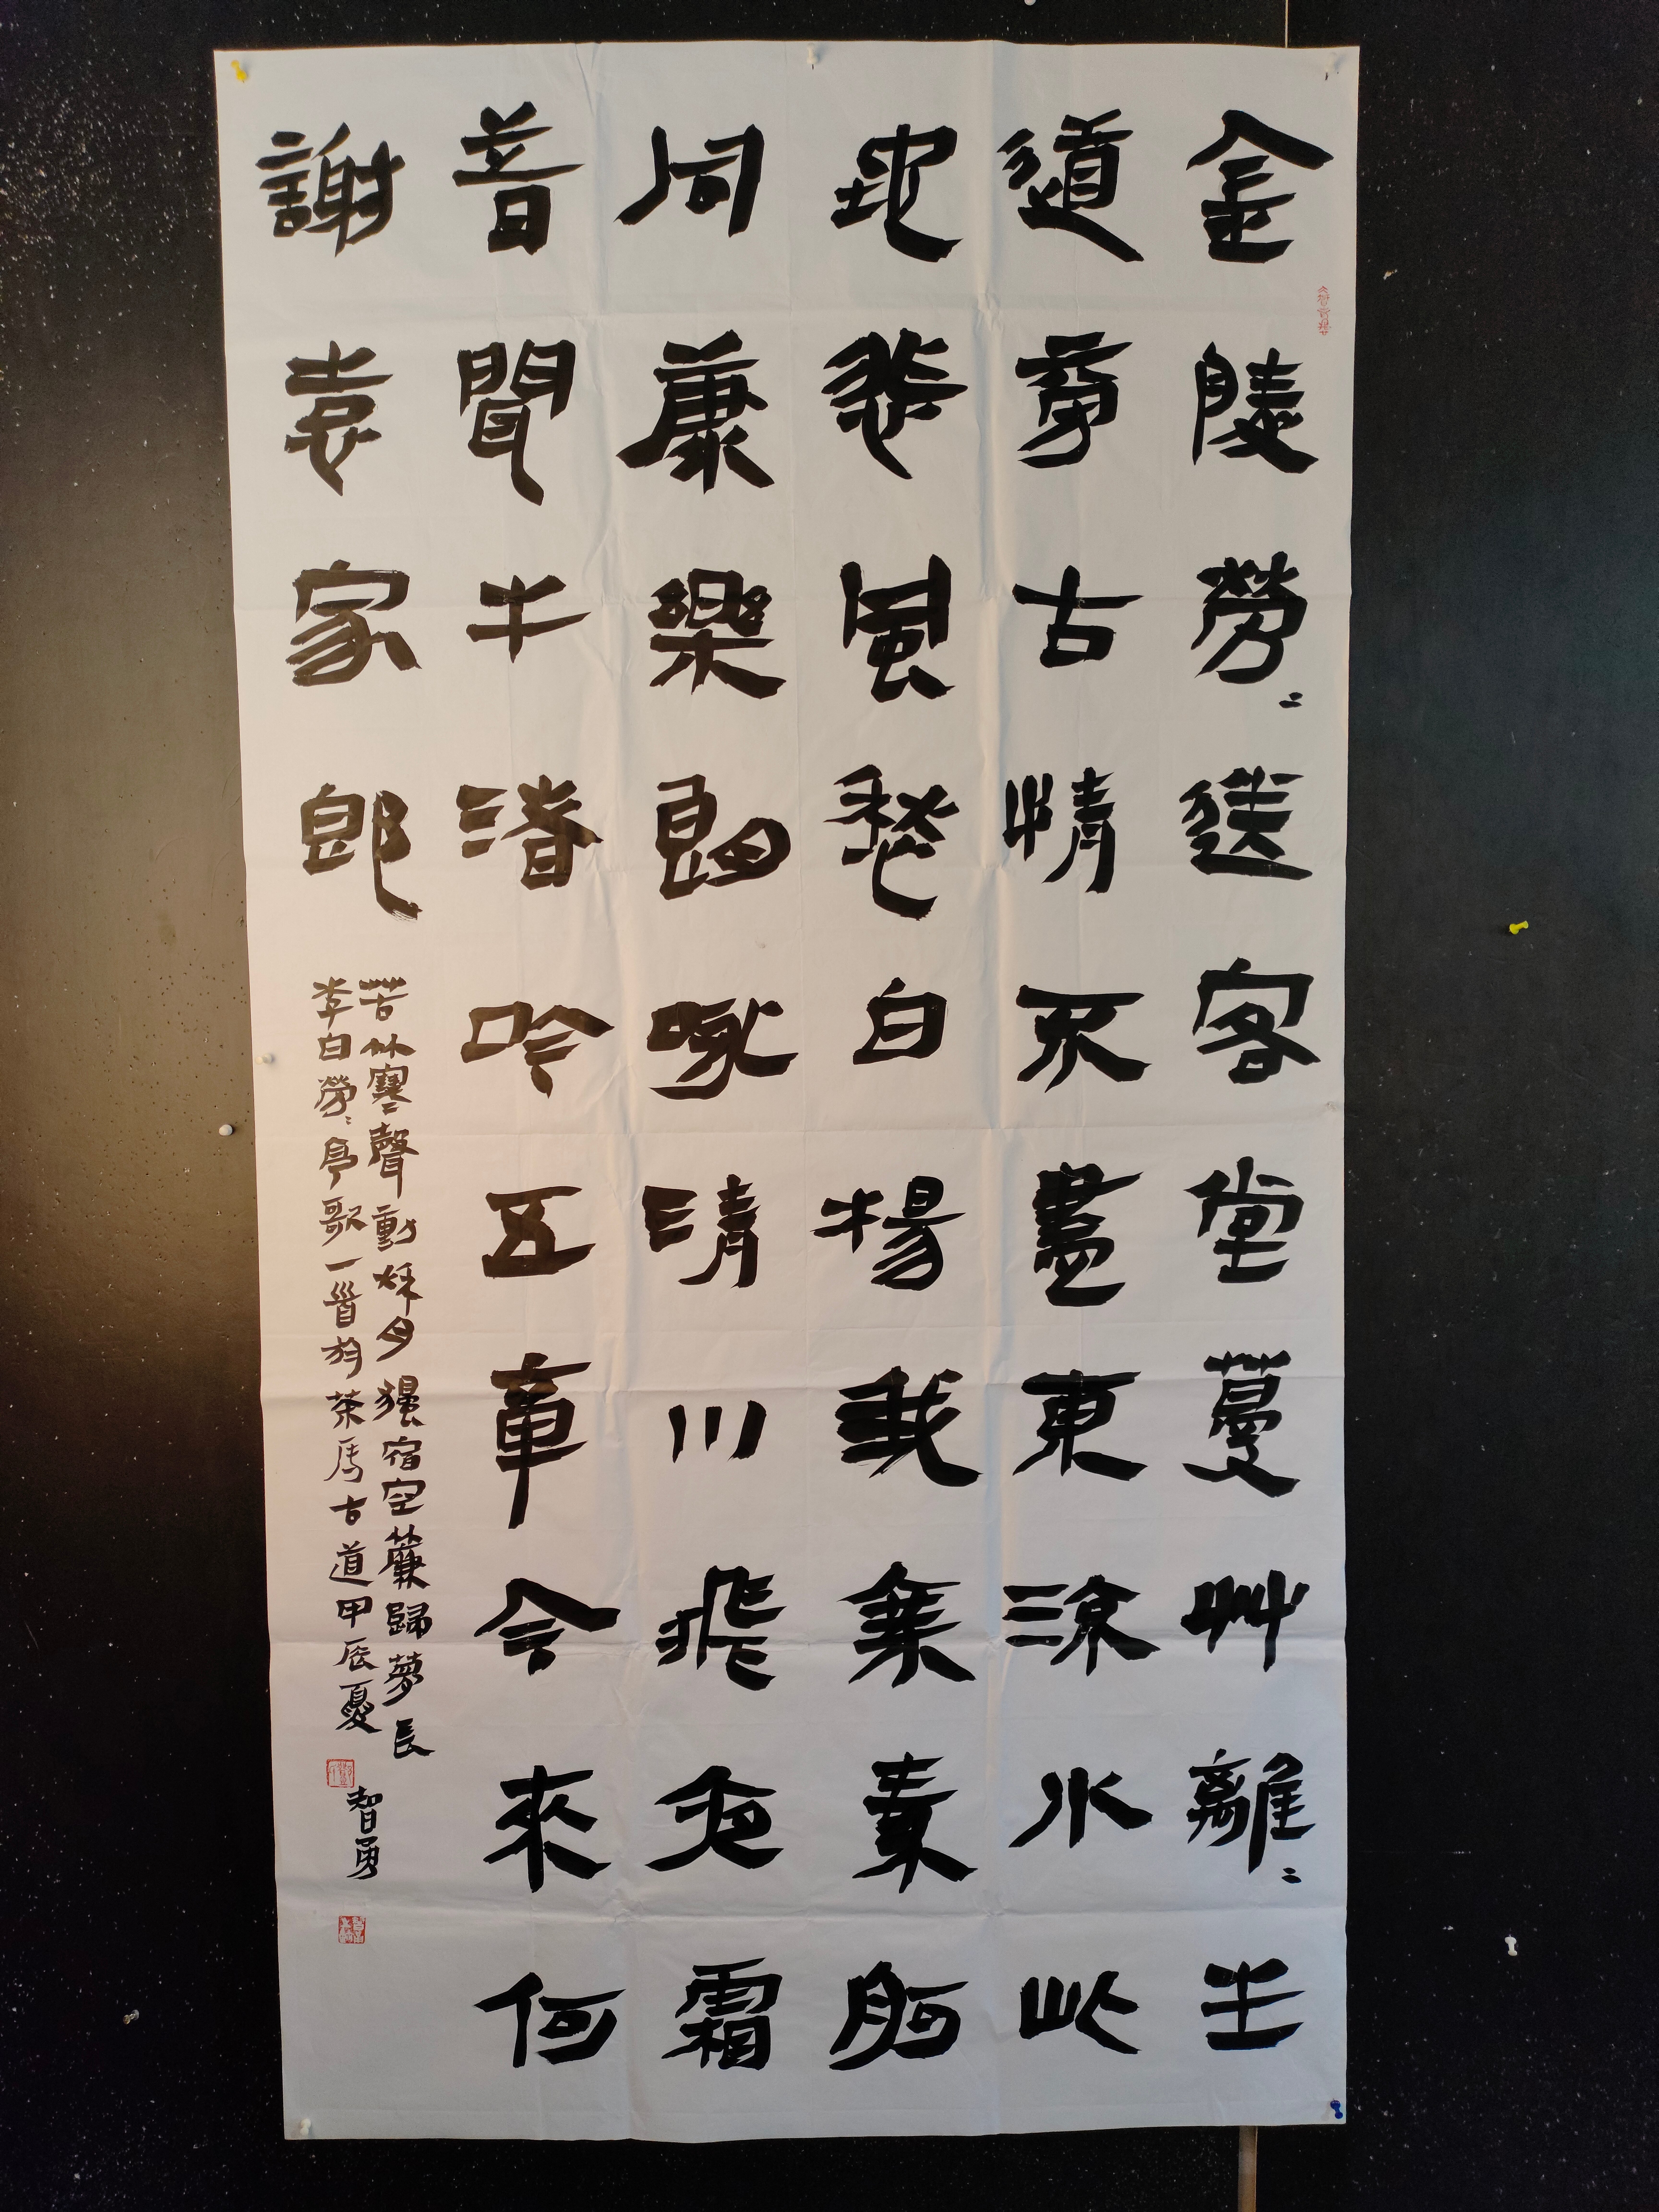 金陵勞〻送客堂蔓艸離〻生
道旁古情不盡東流水此
地悲風愁白楊我乘素舸
同康樂朗咏清川飛夜霜
昔聞牛渚吟五章今來何
謝袁家郎
苦竹寒聲動秌月獨宿空簾歸夢長
李白勞〻亭歌一首於茶馬古道甲辰夏
智勇